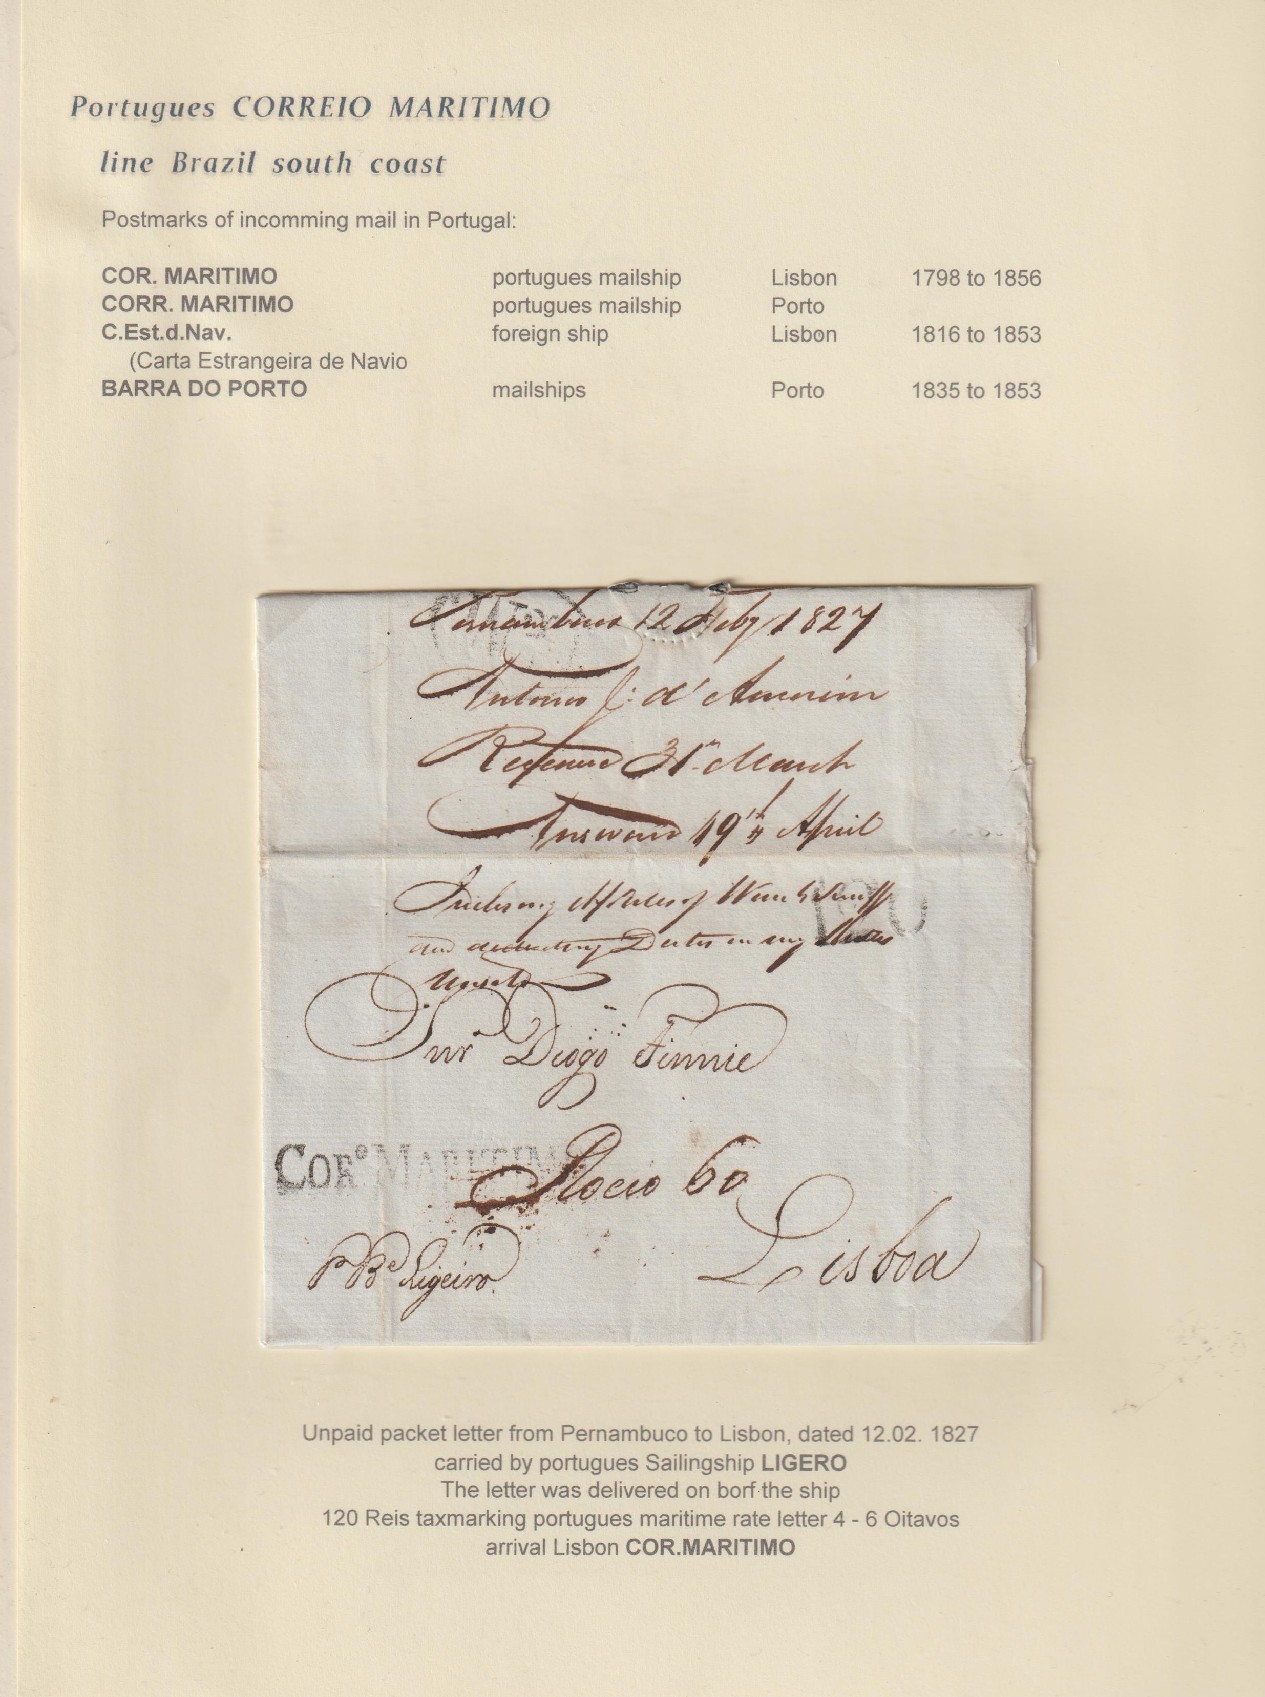 Portugues CORREIO MARITIMO
line Brazil south coast
Postmarks of incomming mail in Portugal:
COR. MARITIMO portugues mailship Lisbon 1798 to 1856
CORR. MARITIMO portugues mailship Porto
C.Est.d.Nav. foreign ship Lisbon 1816 to 1853
(Carta Estrangeira de Navio
BARRA DO PORTO mailships Porto 1835 to 1853
Pernambuco 12 Feby 1827
Antonio J: d' Amorim
Received 31st March
Answered 19th April
Inclosing A/Sales of
and
unsold
120
Snr Diogo Finnie
CORº MARITIMO
Rocio 60
Lisboa
p Be Ligeiro.
Unpaid packet letter from Pernambuco to Lisbon, dated 12.02. 1827
carried by portugues Sailingship LIGERO
The letter was delivered on borf the ship
120 Reis taxmarking portugues maritime rate letter 4 - 6 Oitavos
arrival Lisbon COR.MARITIMO